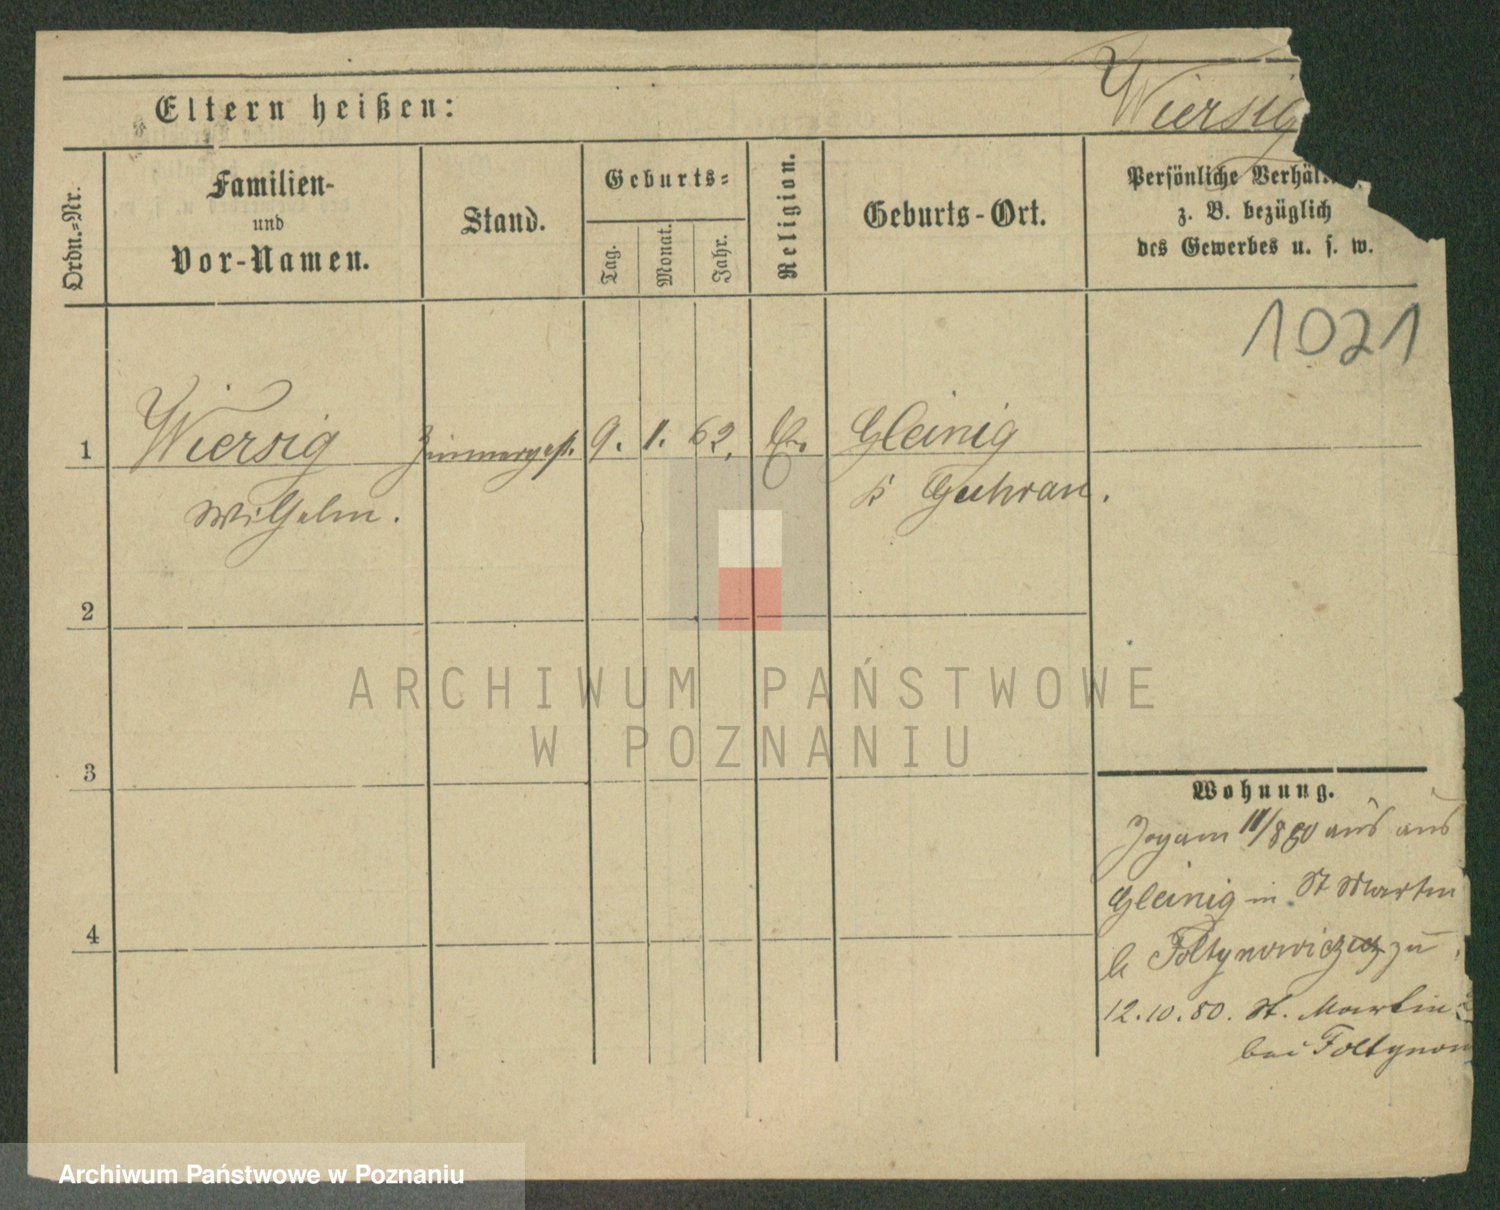 Wiersig
Eltern heißen:
Ordn.=Nr.
Familien-
und
Vor-Namen.
Stand.
Geburts=
Tag.
Monat.
Jahr.
Religion.
Geburts-Ort.
Persönliche Verhäl
z. B. bezüglich
des Gewerbes u. s. w.
1021
1 Wiersig Zimmerges. 9. 1. 62. Ev Gleinig
Wilhelm. Guhrau.
2
3
4
Wohnung.
11/8 80 aus
Gleinig in St Martin
b Foltynowicz zu
12.10.80. St. Martin
bei Foltynow
ARCHIWUM PAŃSTWOWE
W POZNANIU
Archiwum Państwowe w Poznaniu